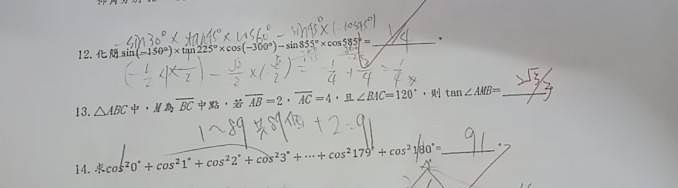 -sin30° × tan45° × cos60° - sin45° × (
12. 化簡sin(-150°)×tan225°×cos(-300°)-sin855°×cos585°= 1/4 。
(-1/2 × 1 × 1/2) - √2/2 × ( √2/2 ) -1/4 + 1/4 = 1/4
13. △ABC中,M為BC中點,若AB=2,AC=4,且∠BAC=120°,則tan∠AMB= √3/3
1~89 共89個 + 2 = 91
14. 求cos²0°+cos²1°+cos²2°+cos²3°+⋯+cos²179°+cos²180°= 91 。